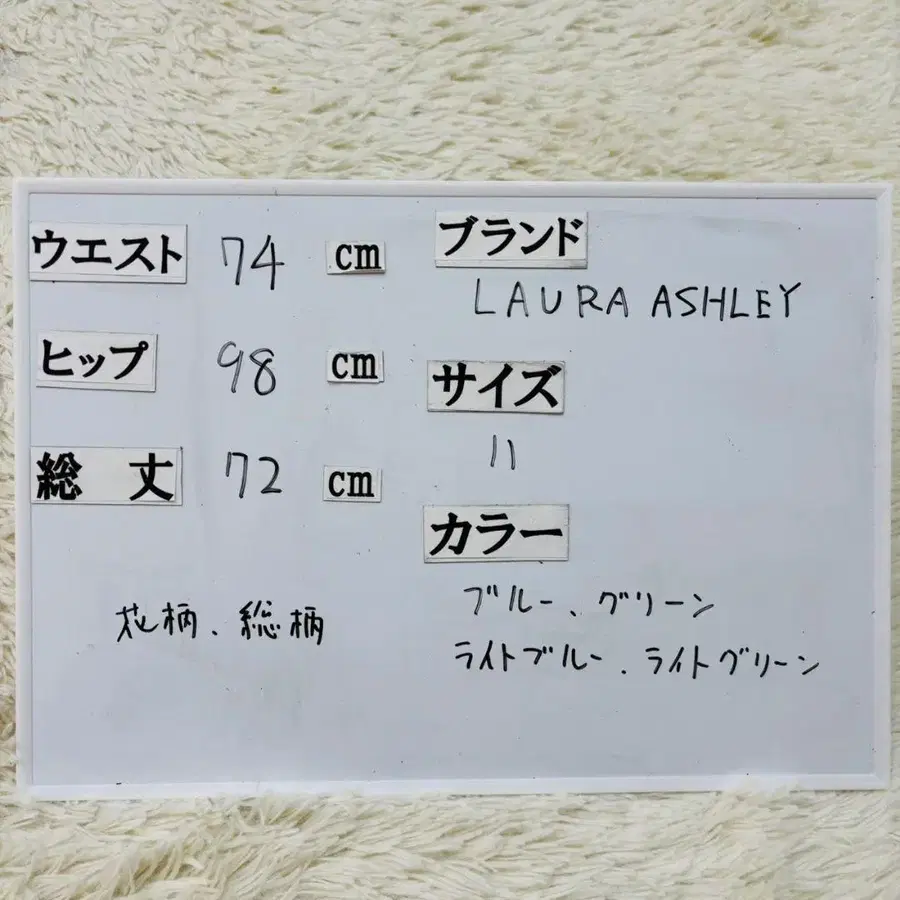 ウエスト 74 cm
ヒップ 98 cm
総丈 72 cm
花柄、総柄
ブランド
LAURA ASHLEY
サイズ
11
カラー
ブルー、グリーン
ライトブルー、ライトグリーン